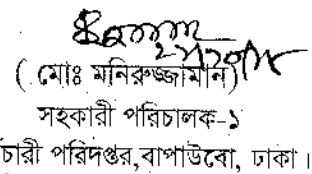 ( মোঃ মনিরুজ্জামান)
সহকারী পরিচালক-১
চারী পরিদপ্তর,বাপাউবো, ঢাকা।